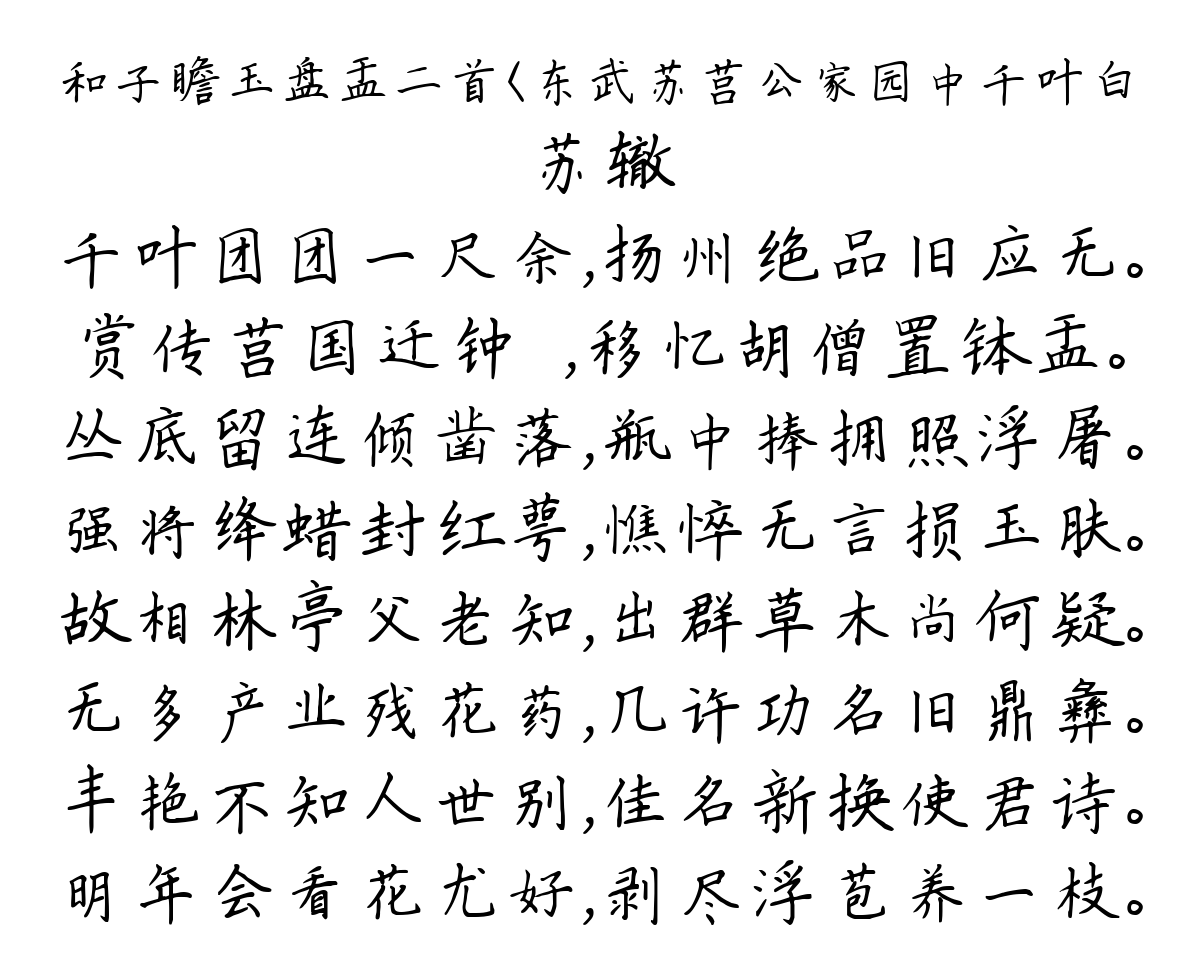 和子瞻玉盘盂二首〈东武苏莒公家园中千叶白
苏辙
千叶团团一尺余,扬州绝品旧应无。
赏传莒国迁钟 ,移忆胡僧置钵盂。
丛底留连倾凿落,瓶中捧拥照浮屠。
强将绛蜡封红萼,憔悴无言损玉肤。
故相林亭父老知,出群草木尚何疑。
无多产业残花药,几许功名旧鼎彝。
丰艳不知人世别,佳名新换使君诗。
明年会看花尤好,剥尽浮苞养一枝。